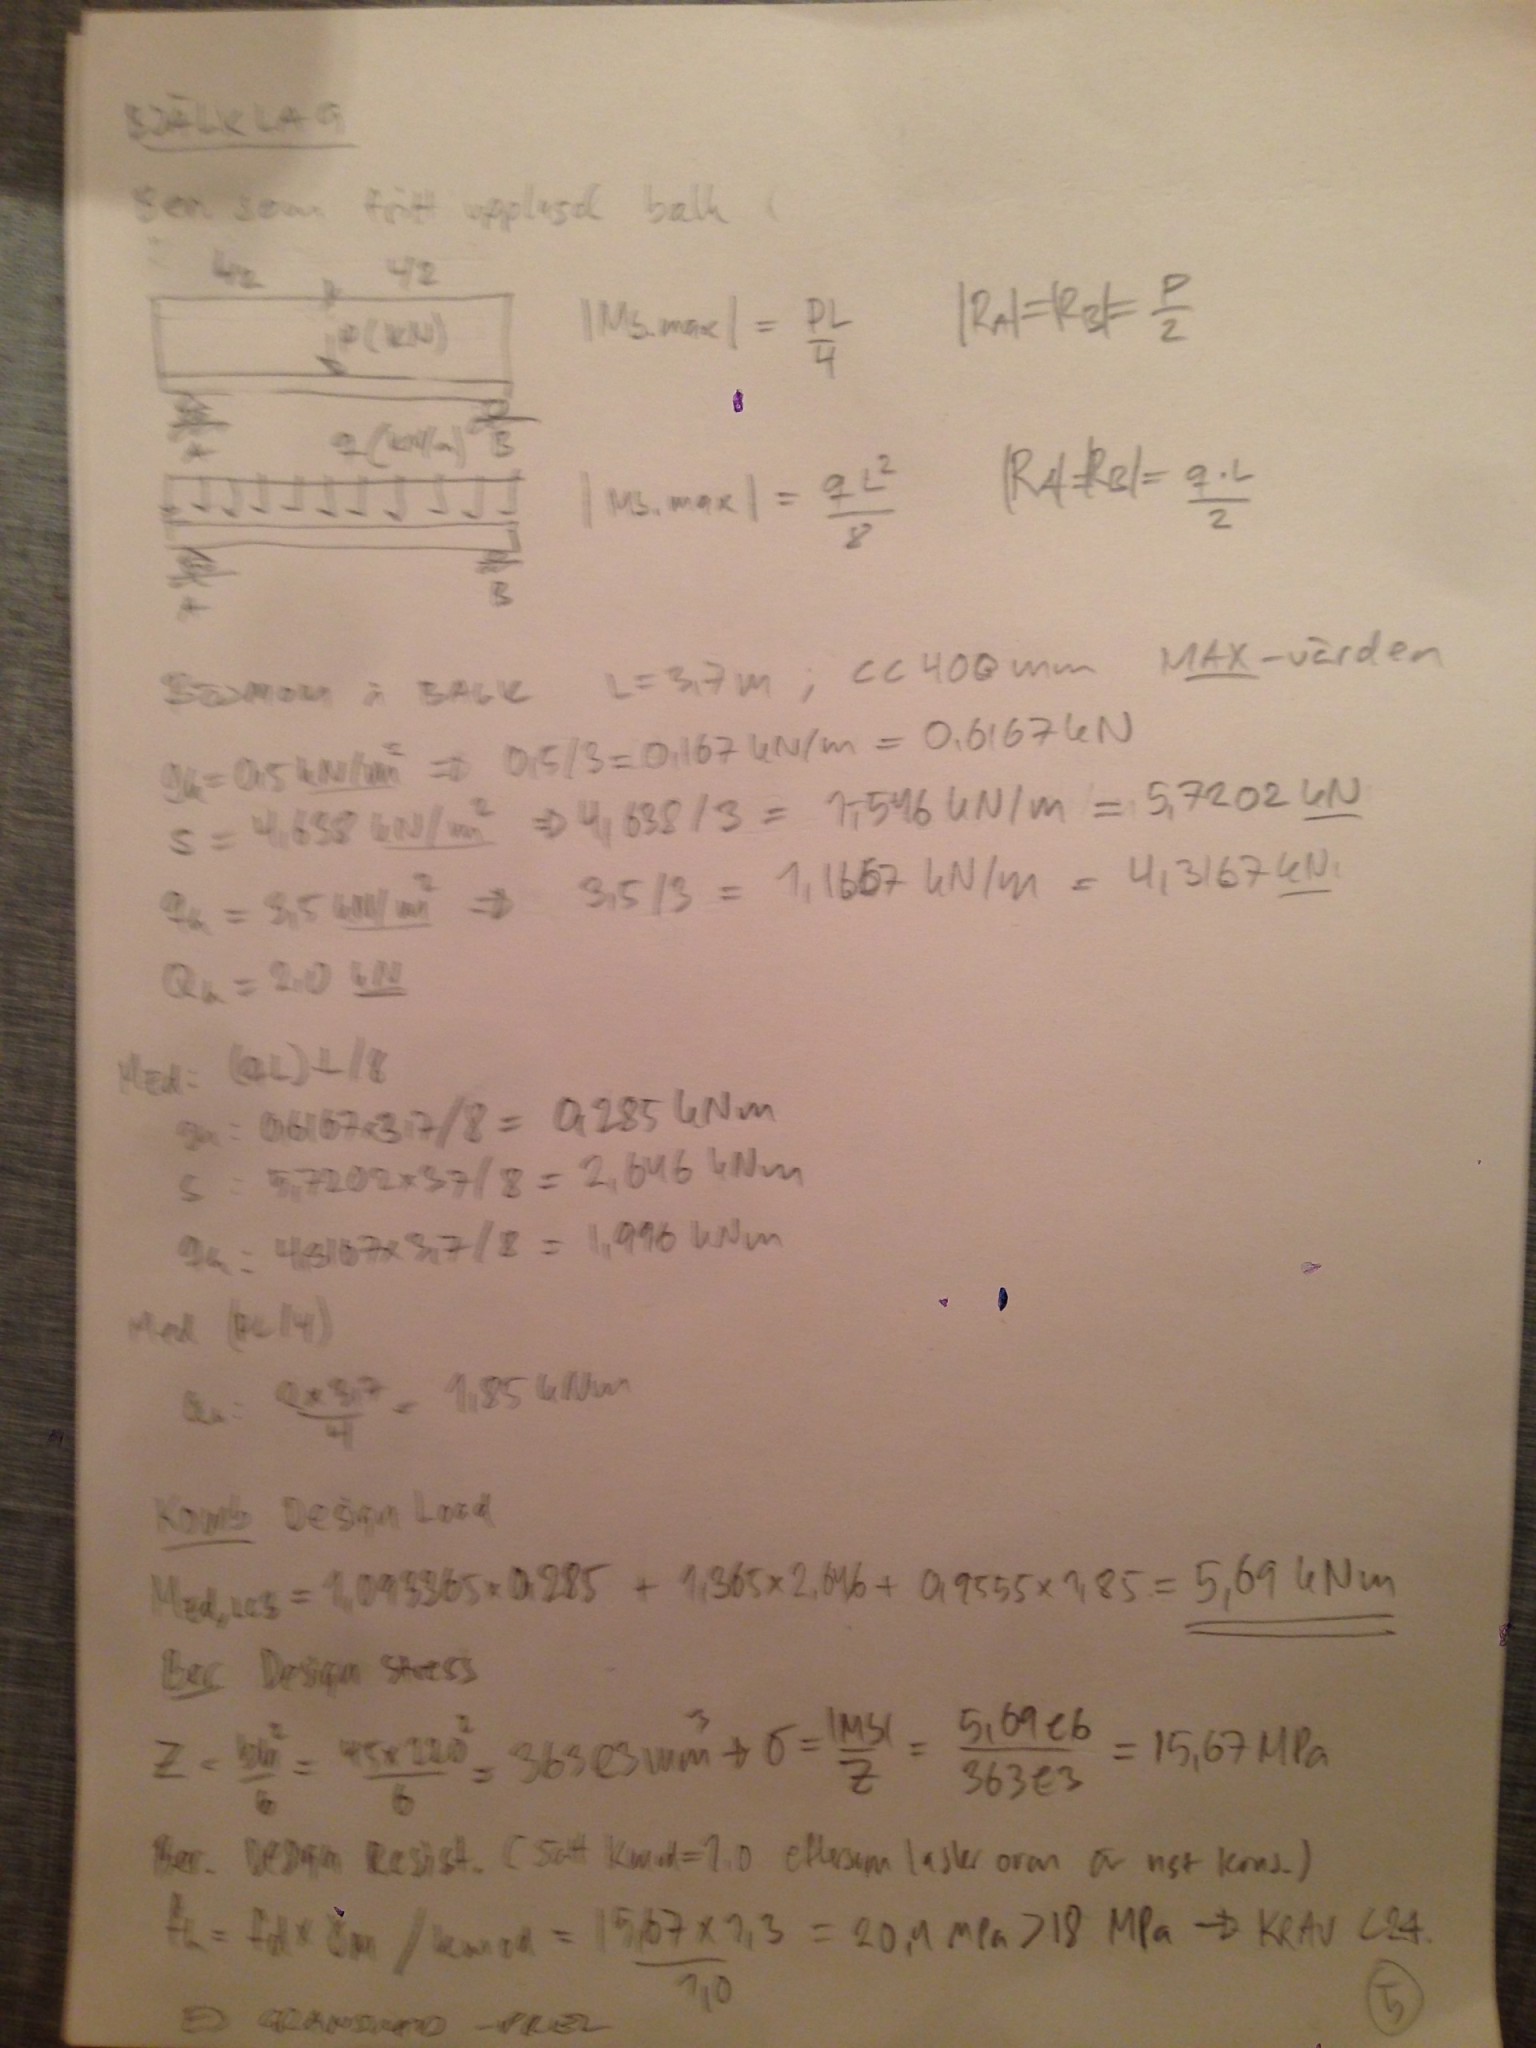 BJÄLKLAG
Ses som fritt upplagd balk :
L/2 L/2
P(kN)
|Mb.max| = PL/4 |RA|=|RB|= P/2
A B
q(kN/m)
|Mb.max| = qL²/8 |RA|=|RB|= q·L/2
A B
BALK L=3,7m ; cc 400mm MAX-värden
gk=0,5 kN/m² => 0,5/3=0,167 kN/m = 0.6167kN
s = 4,638 kN/m² => 4,638/3 = 1,546 kN/m = 5,7202 kN
qk = 3,5 kN/m² => 3,5/3 = 1,1667 kN/m = 4,3167 kN
Qk = 2.0 kN
MEd: (qL)L/8
gk: 0,6167×3,7/8 = 0,285 kNm
s : 5,7202×3,7/8 = 2,646 kNm
qk: 4,3167×3,7/8 = 1,996 kNm
MEd (PL/4)
Qk: 2×3,7/4 = 1,85 kNm
Komb Design Load
= 1,093365×0,285 + 1,365×2,646 + 0,9555×1,85 = 5,69 kNm
Ber Design stress
Z = bh²/6 = 45×220²/6 = 363e3mm³ → σ = |Mb|/Z = 5,69e6/363e3 = 15,67 MPa
Ber. Design Resist. (Sätt kmod=1.0 eftersom laster ovan är kons.)
fk = fd × γm / kmod = 15,67×1,3/1,0 = 20,4 MPa > 18 MPa → KRAV C24.
5